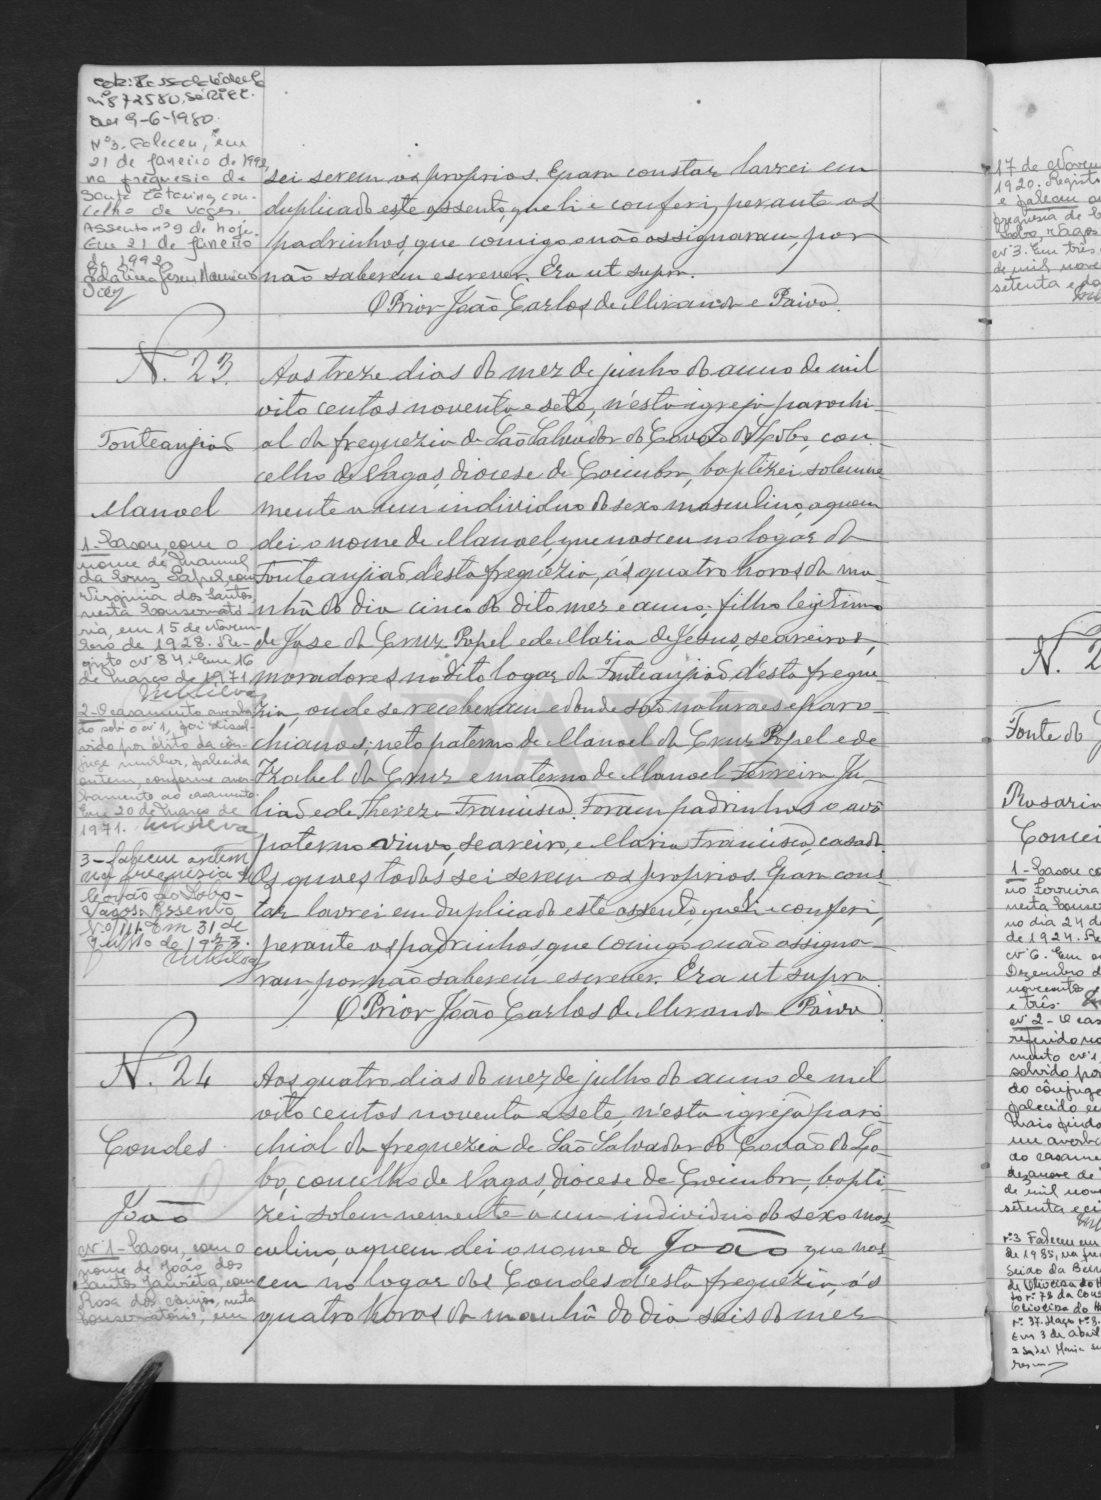 nº 872580, Série C.
aos 9-6-1980.
Nº 3. Faleceu, em
21 de Janeiro de 1992,
na freguesia de
Santa Catarina, con-
celho de Vagos.
Assento nº 9 de hoje.
Em 21 de Janeiro
de 1992.
sei serem os proprios. E para constar lavrei em
duplicado este assento, que li e conferi, perante os
padrinhos, que comigo o não assignaram, por
não saberem escrever. Era ut supra.
O Prior João Carlos de Miranda e Paiva.
N. 23.
Fonteanjião
Manoel
1-Casou, com o
nome de Manuel
da Cruz Papel, com
Virginia dos Santos,
nesta Conservató-
ria, em 15 de Novem-
bro de 1928. Re-
gisto nº 84. Em 16
de março de 1971.
2-O casamento averba-
do sob o nº 1, foi dissol-
vido por óbito da côn-
juge mulher, falecida
ontem, conforme aver-
bamento ao casamento.
Em 20 de Março de
1971.
3-Faleceu ontem
na freguesia de
Covão do Lobo-
Vagos. Assento
Nº 111. Em 31 de
Julho de 1973.
Aos treze dias do mez de junho do anno de mil
oito centos noventa e sete, n'esta igreja parochi-
al da freguezia de São Salvador do Covão do Lobo, con-
celho de Vagos, diocese de Coimbra, baptizei solemne-
mente a um individuo do sexo masculino, a quem
dei o nome de Manoel, que nasceu no logar da
Fonteanjião d'esta freguezia, ás quatro horas da ma-
nhã do dia cinco do dito mez e anno; filho legitimo
de José da Cruz Papel e de Maria de Jesus, seareiros,
moradores no dito logar da Fonteanjião d'esta fregue-
zia, onde se receberam e donde são naturaes e paro-
chianos; neto paterno de Manoel da Cruz Papel e de
Izabel da Cruz e materno de Manoel Ferreira Ju-
lião e de Thereza Francisca. Foram padrinhos o avô
paterno viuvo, seareiro, e Maria Francisca, casada.
Os quaes todos sei serem os proprios. E para cons-
tar lavrei em duplicado este assento, que li e conferi,
perante os padrinhos, que comigo o não assigna-
ram, por não saberem escrever. Era ut supra.
O Prior João Carlos de Miranda e Paiva.
N. 24
Condes
João
nº 1-Casou, com o
nome de João dos
Santos Janvieta, com
Rosa dos Anjos, nesta
Conservatória, em
Aos quatro dias do mez de julho do anno de mil
oito centos noventa e sete, n'esta igreja paro-
chial da freguezia de São Salvador do Covão do Lo-
bo, concelho de Vagos, diocese de Coimbra, bapti-
zei solemnemente a um individuo do sexo mas-
culino, a quem dei o nome de João que nas-
ceu no logar dos Condes d'esta freguezia, ás
quatro horas da manhã do dia seis do mez
17 de Novem
1920. Registo
e faleceu
freguesia de
Lobo, Vagos
nº 3. Em três
de mil nove
setenta e do
N. 2
Fonte do
Rosaria
Concei
1-Casou co
no Ferreira
nesta Conser
no dia 24 d
de 1924. Re
nº 6. Em
Dezembro d
novecentos
e três.
nº 2-O cas
referido no
mento nº 1
solvido por
do cônjuge
falecido em
Maio findo
um averba
do casame
dezanove de
de mil nov
setenta e ci
nº 3 Faleceu em
de 1985, na fre
de Oliveira do H
to nº 78 da Cons
Oliveira do H
nº 37. Maço nº 3.
Em 3 de Abril